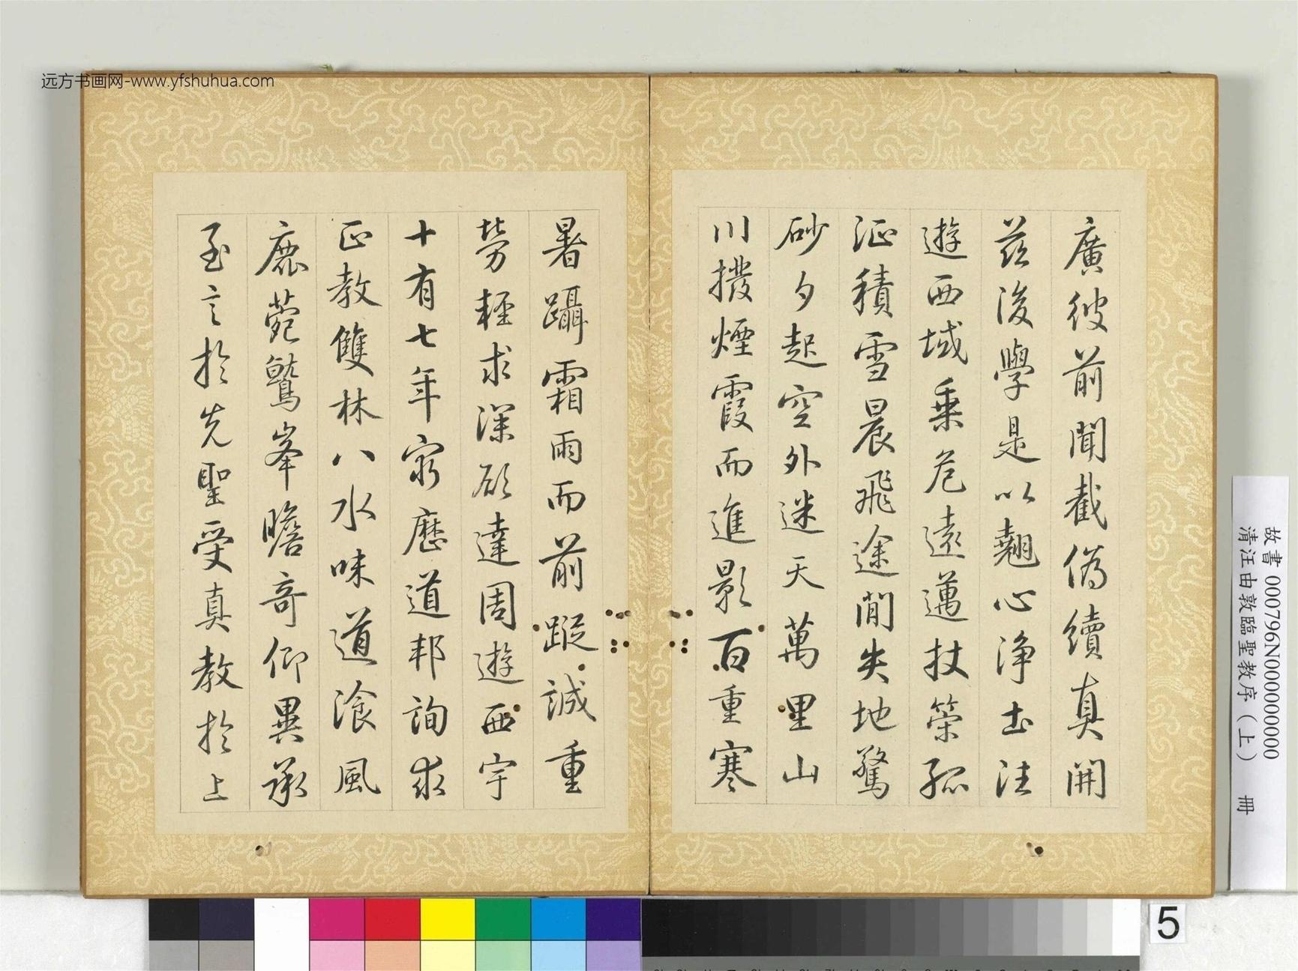 远方书画网-www.yfshuhua.com
廣彼前聞截偽續真開
茲後學是以翹心淨土法
遊西域乗危遠邁杖策孤
征積雪晨飛途閒失地驚
砂夕起空外迷天萬里山
川撥煙霞而進影百重寒
暑躡霜雨而前蹤誠重
勞輕求深願達周遊西宇
十有七年窮歷道邦詢求
正教雙林八水味道飡風
鹿菀鷲峯瞻奇仰異承
至言於先聖受真教於上
故書 000796N000000000
清汪由敦臨聖教序（上） 冊
5